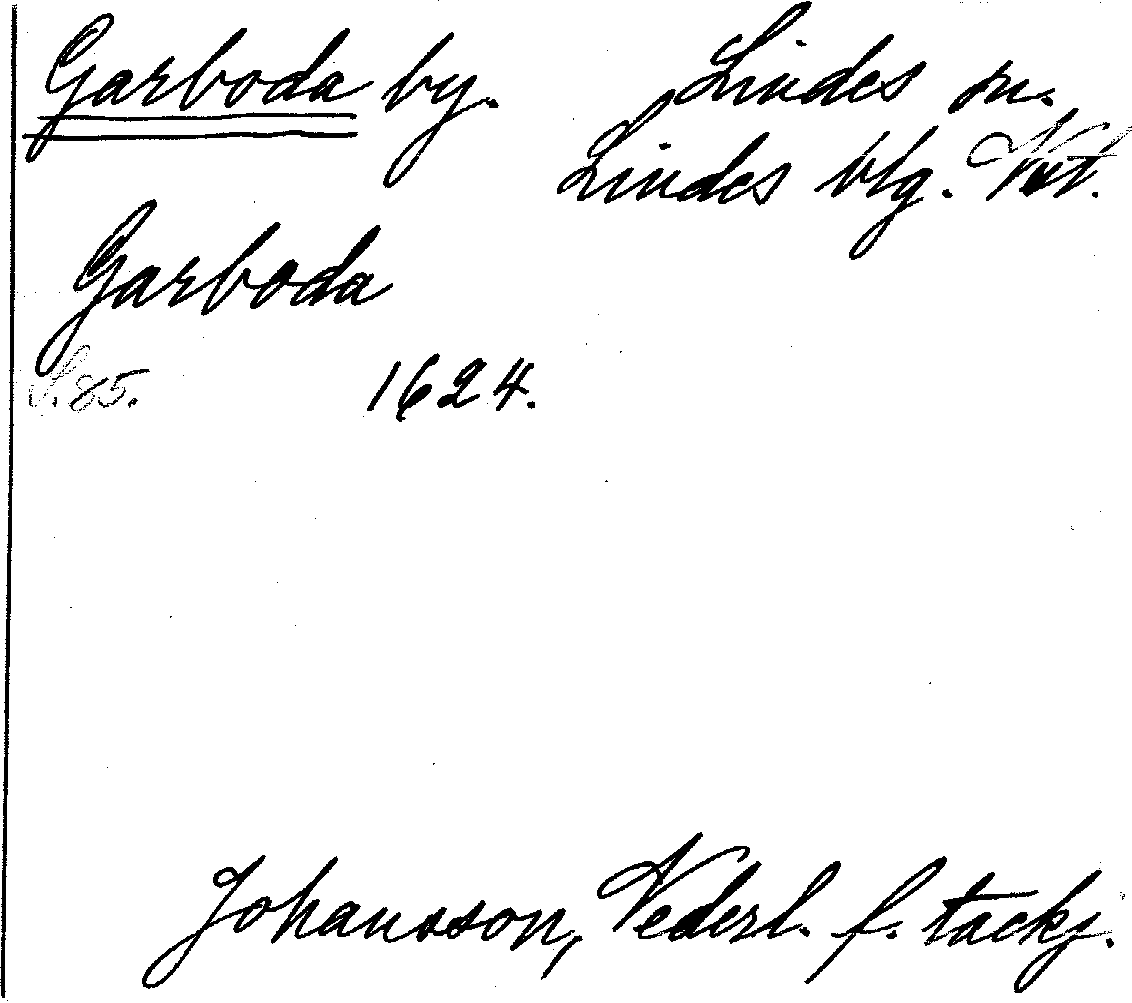 Garboda by. Lindes sn.
Lindes blg. Vstl.
Garboda
S. 85. 1624.
Johansson, Vederl. f. tackj.